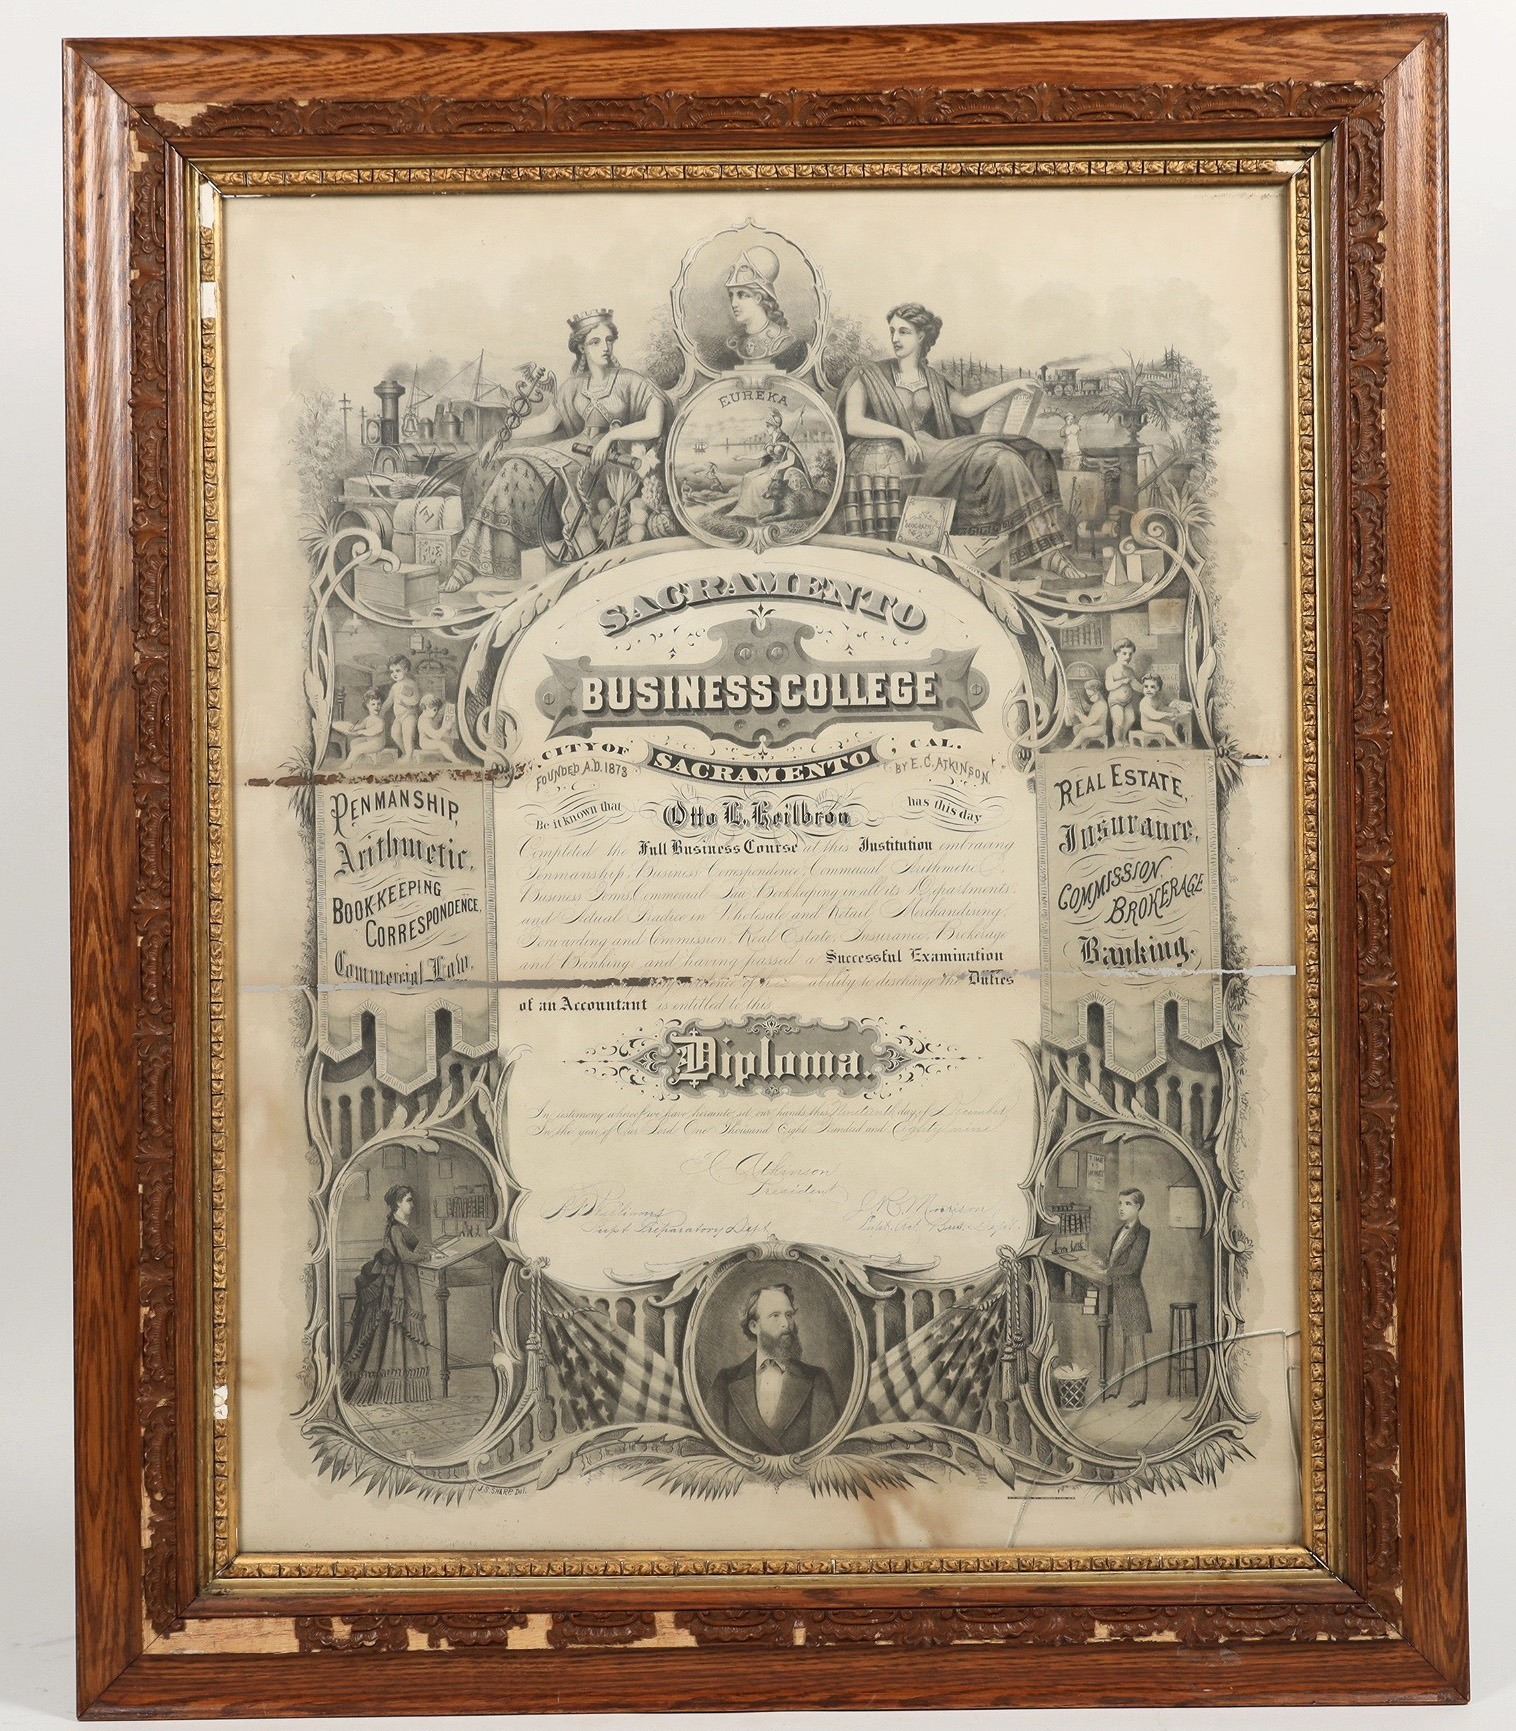 EUREKA
GEOGRAPHY
SACRAMENTO
BUSINESS COLLEGE
CITY OF SACRAMENTO, CAL.
FOUNDED A.D. 1873 BY E. C. ATKINSON
Be it known that Otto L. Heilbron has this day
Completed the Full Business Course at this Institution embracing
Penmanship, Business Correspondence, Commercial Arithmetic,
Business Forms, Commercial Law, Bookkeeping in all its Departments.
and Actual Practice in Wholesale and Retail Merchandising,
Forwarding and Commission, Real Estate, Insurance, Brokerage
and Banking, and having passed a Successful Examination
ability to discharge the Duties
of an Accountant is entitled to this
Diploma.
In testimony whereof we have hereunto set our hands this Nineteenth day of December
In the year of Our Lord One Thousand Eight Hundred and Eighty nine
E C Atkinson
President
Williams
Supt Preparatory Dept
J. R. Morrison
Dept.
PENMANSHIP,
Arithmetic,
BOOK-KEEPING
CORRESPONDENCE,
Commercial Law.
REAL ESTATE,
Insurance,
COMMISSION,
BROKERAGE
Banking.
SHARP Del.